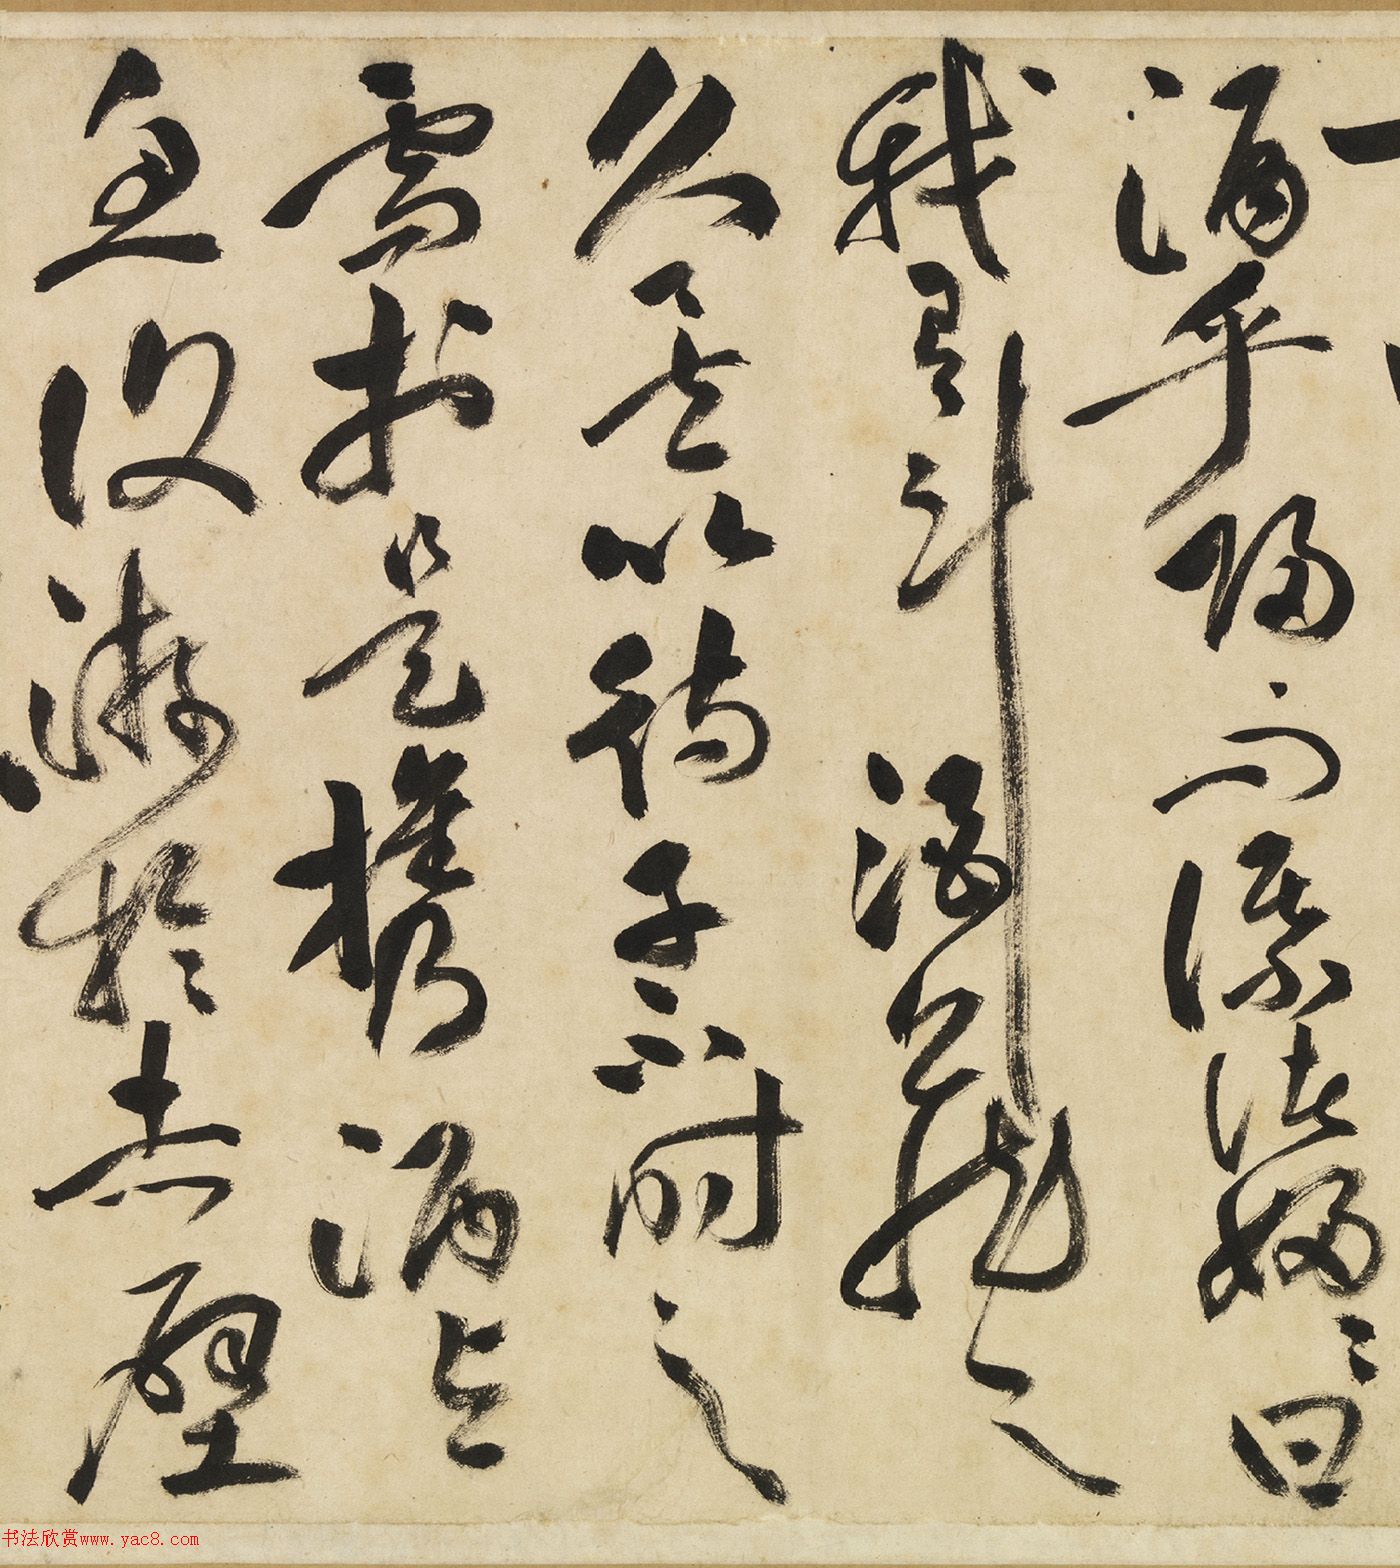 酒乎歸而謀諸婦〻曰
我有斗酒藏之
久矣以待子不時之
需於是攜酒與
魚復游於赤壁
书法欣赏www.yac8.com